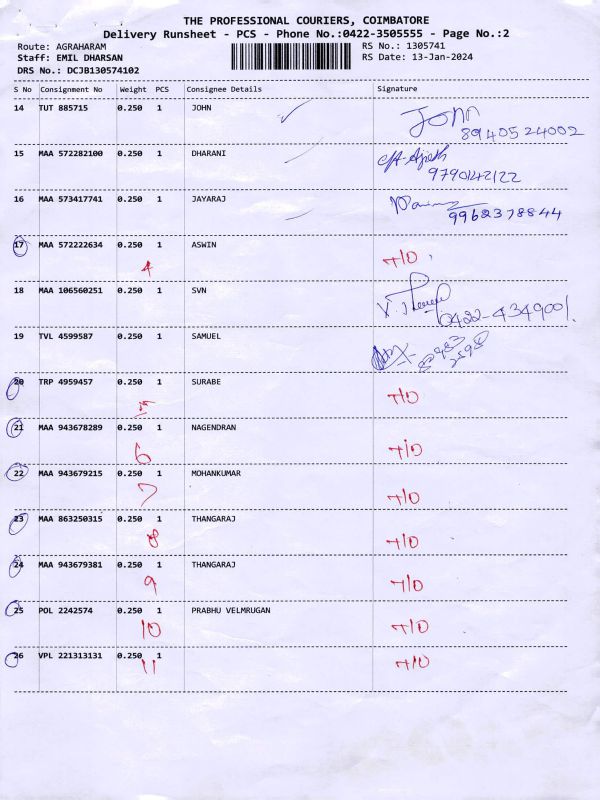 THE PROFESSIONAL COURIERS, COIMBATORE
Delivery Runsheet - PCS - Phone No.:0422-3505555 - Page No.:2
Route: AGRAHARAM RS No.: 1305741
Staff: EMIL DHARSAN RS Date: 13-Jan-2024
DRS No.: DCJB130574102
S No Consignment No Weight PCS Consignee Details Signature
14 TUT 885715 0.250 1 JOHN John
8940524002
15 MAA 572282100 0.250 1 DHARANI
9790142122
16 MAA 573417741 0.250 1 JAYARAJ
9962378844
17 MAA 572222634 0.250 1 ASWIN T/O
4
18 MAA 106560251 0.250 1 SVN
0422-4349001
19 TVL 4599587 0.250 1 SAMUEL
20 TRP 4959457 0.250 1 SURABE T/O
5
21 MAA 943678289 0.250 1 NAGENDRAN T/O
6
22 MAA 943679215 0.250 1 MOHANKUMAR T/O
7
23 MAA 863250315 0.250 1 THANGARAJ T/O
8
24 MAA 943679381 0.250 1 THANGARAJ T/O
9
25 POL 2242574 0.250 1 PRABHU VELMRUGAN T/O
10
26 VPL 221313131 0.250 1 T/O
11